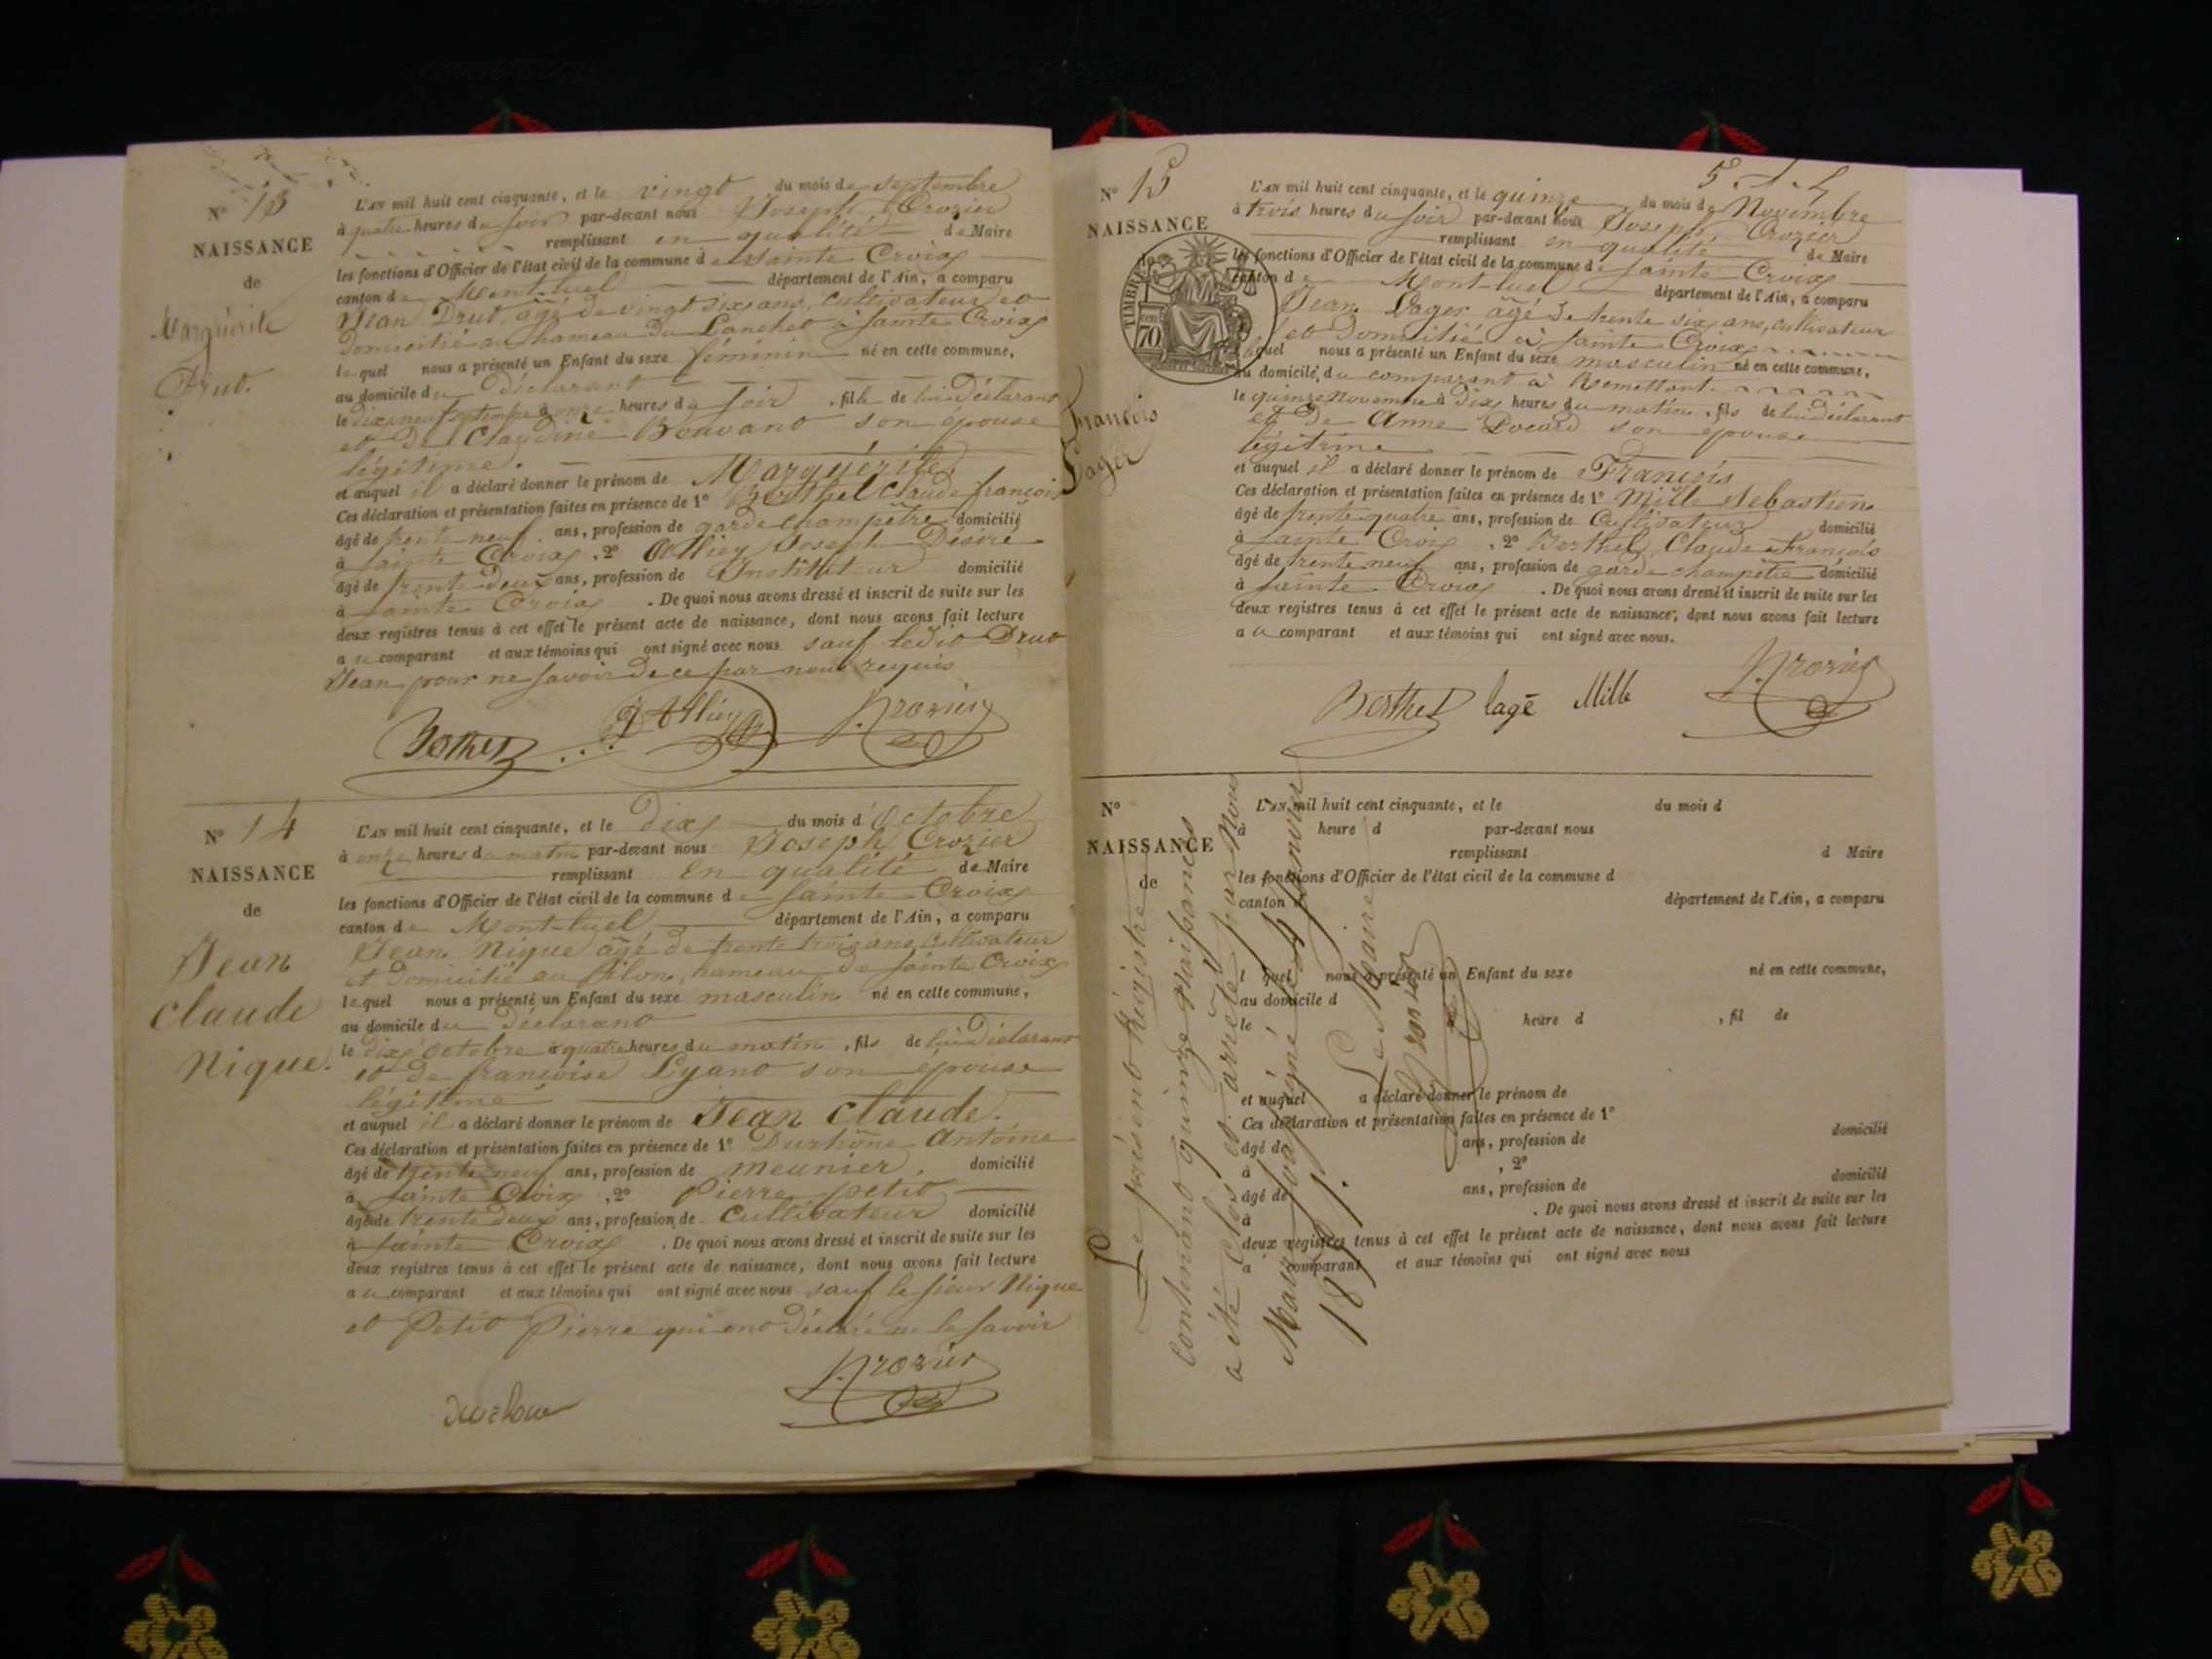 N° 13
NAISSANCE
de
Marguerite
Drut.
L'AN mil huit cent cinquante, et le vingt du mois de septembre
à quatre heures du soir par-devant nous Joseph Crozier
remplissant en qualité de Maire
les fonctions d'Officier de l'état civil de la commune de Sainte Croix
canton de Mont-luel département de l'Ain, a comparu
Jean Drut, âgé de vingt six ans, cultivateur et
domicilié au hameau du Lanchet à Sainte Croix
lequel nous a présenté un Enfant du sexe féminin né en cette commune,
au domicile du Déclarant
le dix neuf septembre à onze heures du soir, fille de lui Déclarant
et de Claudine Bouvant son épouse
légitime.
et auquel il a déclaré donner le prénom de Marguérite
Ces déclaration et présentation faites en présence de 1° Berthet Claude françois
âgé de trente neuf ans, profession de garde champêtre domicilié
à Sainte Croix, 2° Joseph Désiré
âgé de trente deux ans, profession de Instituteur domicilié
à Sainte Croix. De quoi nous avons dressé et inscrit de suite sur les
deux registres tenus à cet effet le présent acte de naissance, dont nous avons fait lecture
au comparant et aux témoins qui ont signé avec nous sauf ledit Drut
Jean pour ne savoir de ce par nous requis
Berthet Crozier
N° 14
NAISSANCE
de
Jean
Claude
Nique.
L'AN mil huit cent cinquante, et le dix du mois d'Octobre
à onze heures du matin par-devant nous Joseph Crozier
remplissant en qualité de Maire
les fonctions d'Officier de l'état civil de la commune de Sainte Croix
canton de Mont-luel département de l'Ain, a comparu
Jean Nique âgé de trente trois ans cultivateur
et domicilié au Pilon, hameau de Sainte Croix
lequel nous a présenté un Enfant du sexe masculin né en cette commune,
au domicile du Déclarant
le dix octobre à quatre heures du matin, fils de lui Déclarant
et de françoise Lyant son épouse
légitime
et auquel il a déclaré donner le prénom de Jean Claude.
Ces déclaration et présentation faites en présence de 1° Durhône Antoine
âgé de trente neuf ans, profession de meunier, domicilié
à Sainte Croix, 2° Pierre petit
âgé de trente deux ans, profession de Cultivateur domicilié
à Sainte Croix. De quoi nous avons dressé et inscrit de suite sur les
deux registres tenus à cet effet le présent acte de naissance, dont nous avons fait lecture
au comparant et aux témoins qui ont signé avec nous sauf le sieur Nique
et Petit Pierre qui ont déclaré ne le savoir
Crozier
N° 15
NAISSANCE
de
François
Lager
TIMBRE
70
L'AN mil huit cent cinquante, et le quinze du mois de Novembre
à trois heures du soir par-devant nous Joseph Crozier
remplissant en qualité de Maire
les fonctions d'Officier de l'état civil de la commune de Sainte Croix
canton de Mont-luel département de l'Ain, a comparu
Jean Lager âgé de trente six ans, cultivateur
et domicilié à Sainte Croix
lequel nous a présenté un Enfant du sexe masculin né en cette commune,
au domicile du comparant à Romettant
le quinze Novembre à dix heures du matin, fils de lui déclarant
et de Anne Pocard son épouse
légitime
et auquel il a déclaré donner le prénom de François
Ces déclaration et présentation faites en présence de 1° Mille Sebastien
âgé de trente quatre ans, profession de Cultivateur domicilié
à Sainte Croix, 2° Berthet, Claude François
âgé de trente neuf ans, profession de garde champêtre domicilié
à Sainte Croix. De quoi nous avons dressé et inscrit de suite sur les
deux registres tenus à cet effet le présent acte de naissance, dont nous avons fait lecture
au comparant et aux témoins qui ont signé avec nous.
Berthet lagé Mille Crozier
N°
NAISSANCE
de
L'AN mil huit cent cinquante, et le du mois d
à heure d par-devant nous
remplissant d Maire
les fonctions d'Officier de l'état civil de la commune d
canton d département de l'Ain, a comparu
l quel nous a présenté un Enfant du sexe né en cette commune,
au domicile d
le heure d , fil de
et auquel a déclaré donner le prénom de
Ces déclaration et présentation faites en présence de 1°
âgé de ans, profession de domicilié
à , 2°
âgé de ans, profession de domicilié
à . De quoi nous avons dressé et inscrit de suite sur les
deux registres tenus à cet effet le présent acte de naissance, dont nous avons fait lecture
a comparant et aux témoins qui ont signé avec nous
Le présent Registre
Contenant quinze naissances
a été Clos et arrêté par Nous
Maire soussigné le 4 Janvier
1851.
Le Maire
Crozier